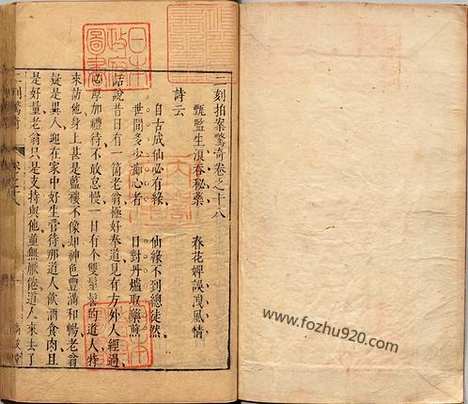 二刻拍案驚奇卷之十八
甄監生浪吞秘藥　春花婢誤洩風情
詩云
自古成仙必有緣　仙緣不到總徒然
世間多少癡心者　日對丹爐取藥煎
話說昔日有一箇老翁極好奉道見有方外人經過
必厚加禮待不敢怠慢一日有箇雙髻的道人特
來訪他身上甚是藍褸不像却神色豐滿和暢老翁
疑是異人迎在家中好生管待那道人飲酒食肉且
是好量老翁只是支持與他並無厭倦道人來去了
日本
政府
圖書
www.fozhu920.com